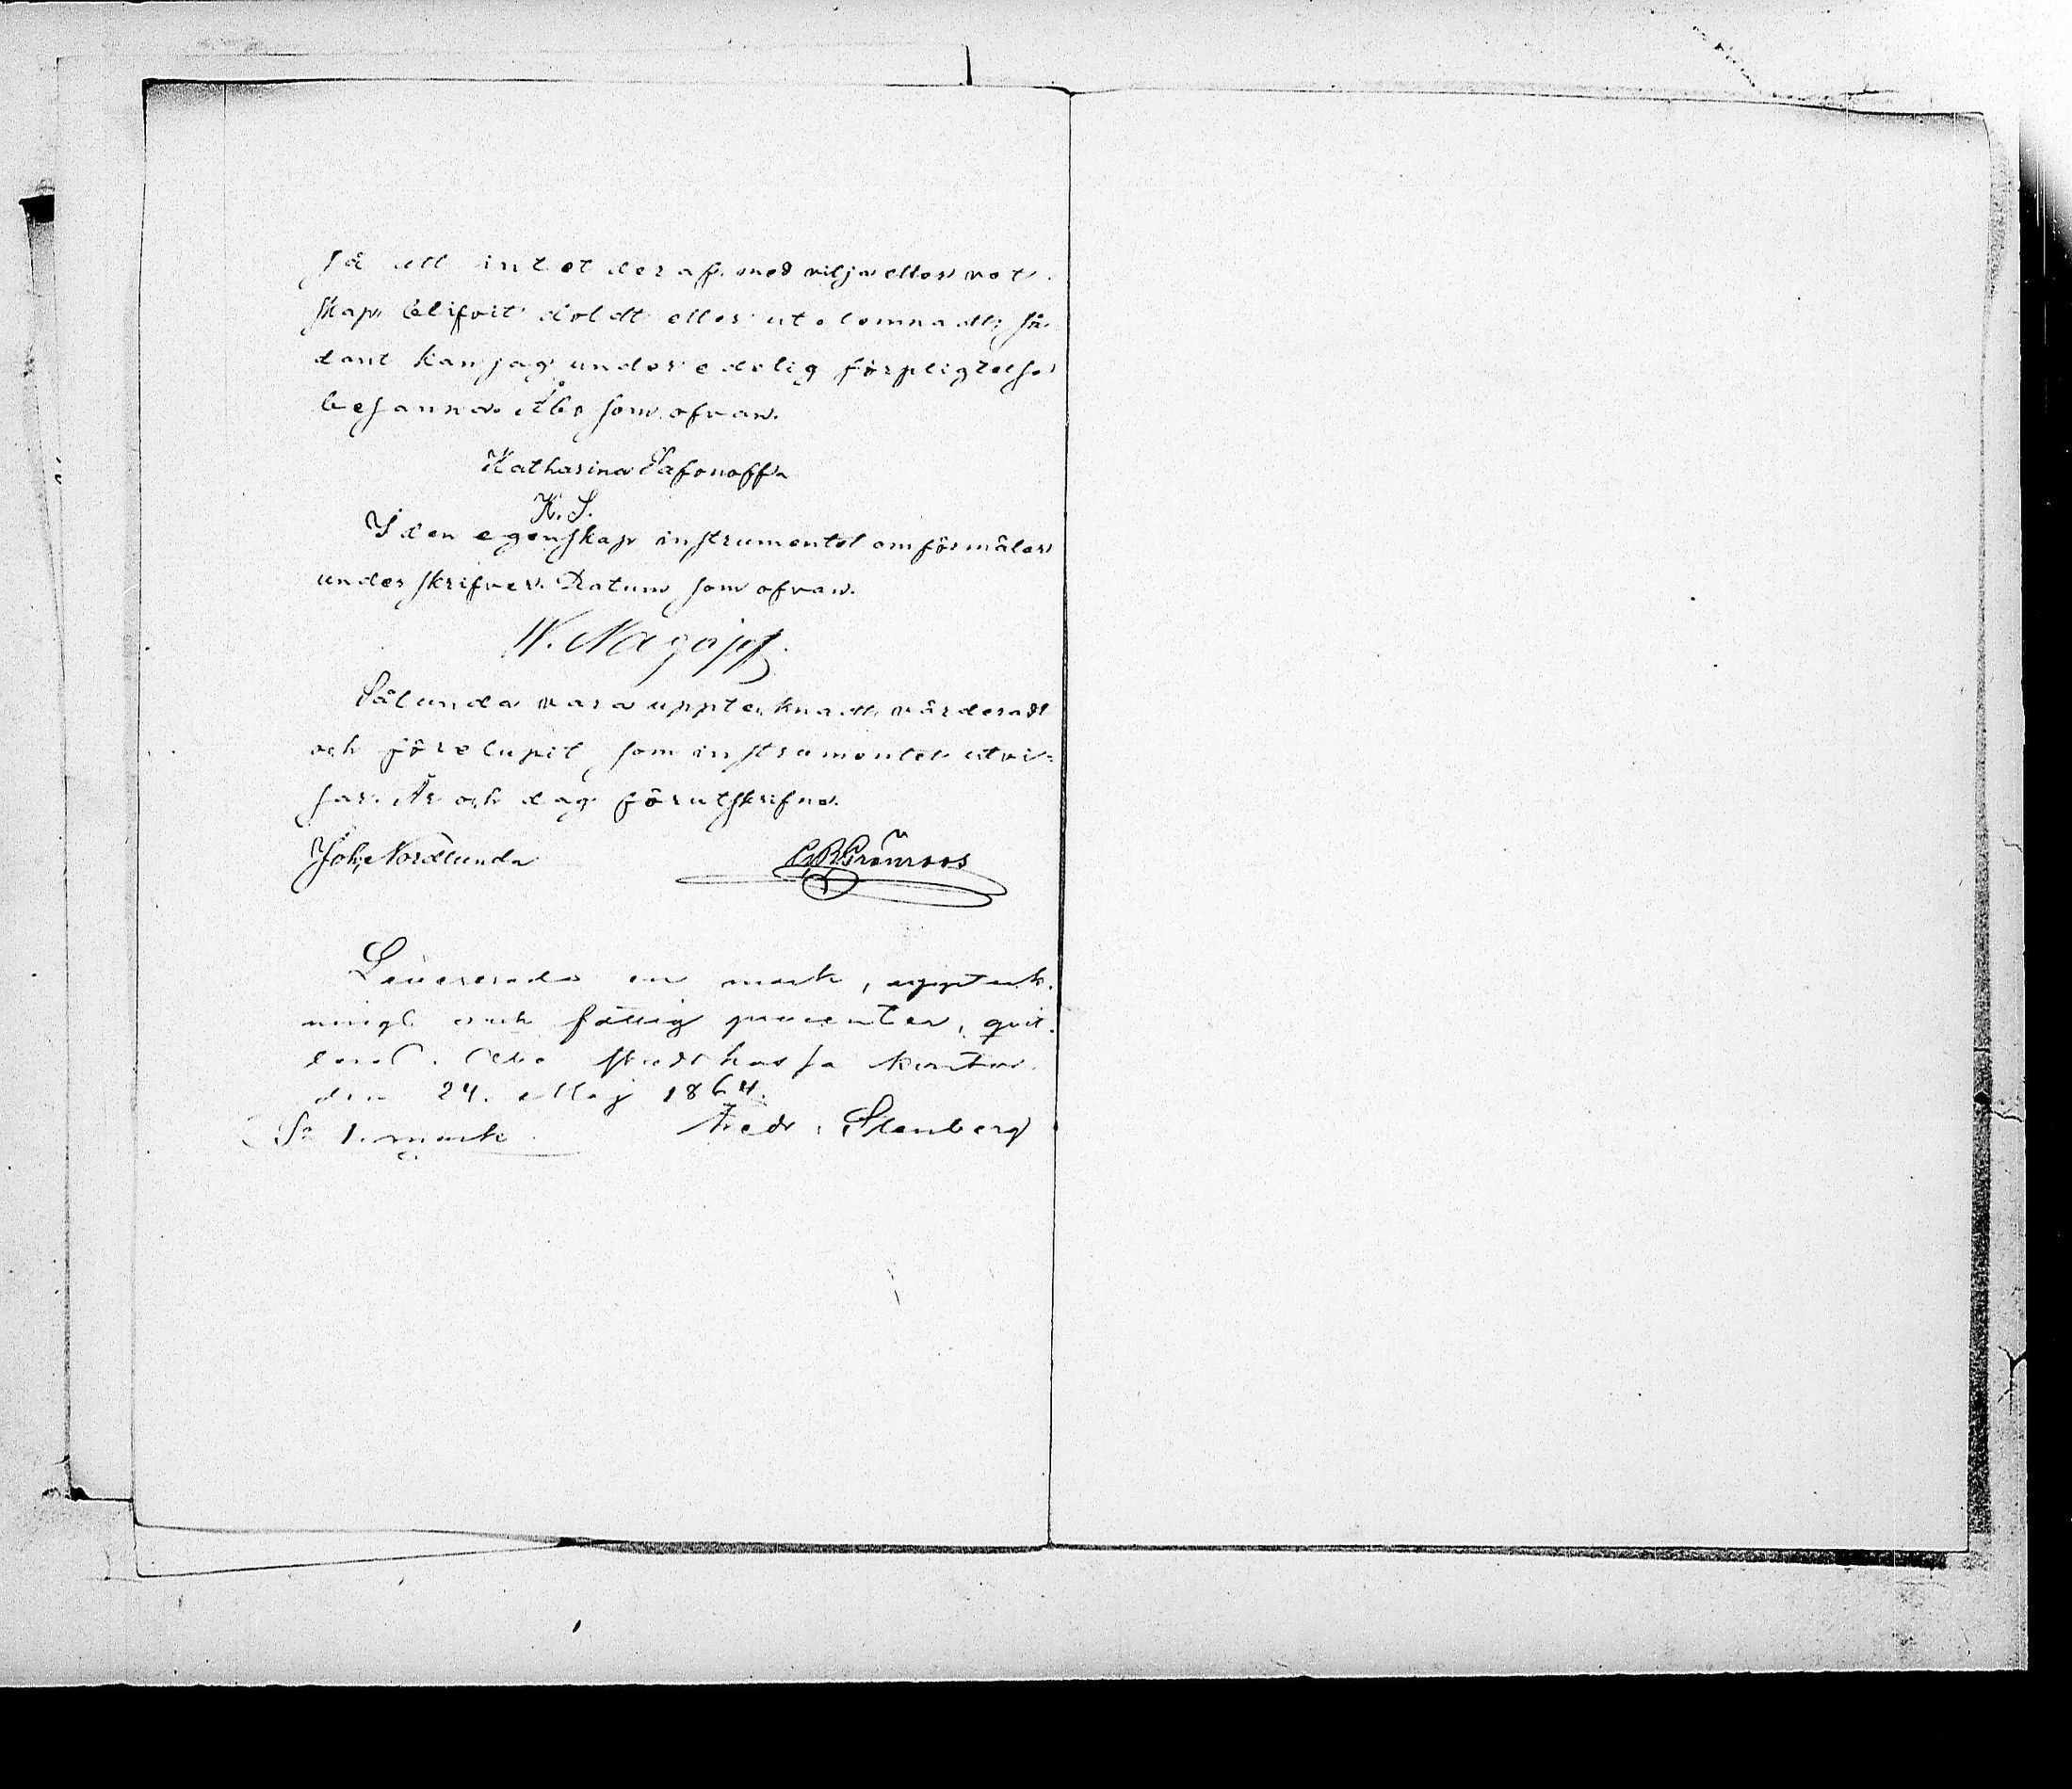 så att intet deraf med vilja eller vet-
skap blifvit doldt eller utelemnadt; så-
dant kan jag under edelig förpligtelse
besanna. Åbo som ofvan.
Katharina Safonoff
K. S.
I den egenskap instrumentet omförmäler
underskrifver. Datum som ofvan.
W.
Sålunda vara upptecknadt, värderadt
och förelupit, som instrumentet utvi=
sar. År och dag förutskrifne.
Joh. Nordlund
Grönroos
Levererade en mark, uppteck-
ningl och fattig procenter, qvit-
teras. Åbo Stadskassa kontor
den 24. Maj 1864.
Sr 1. mark Fredr. Stenberg